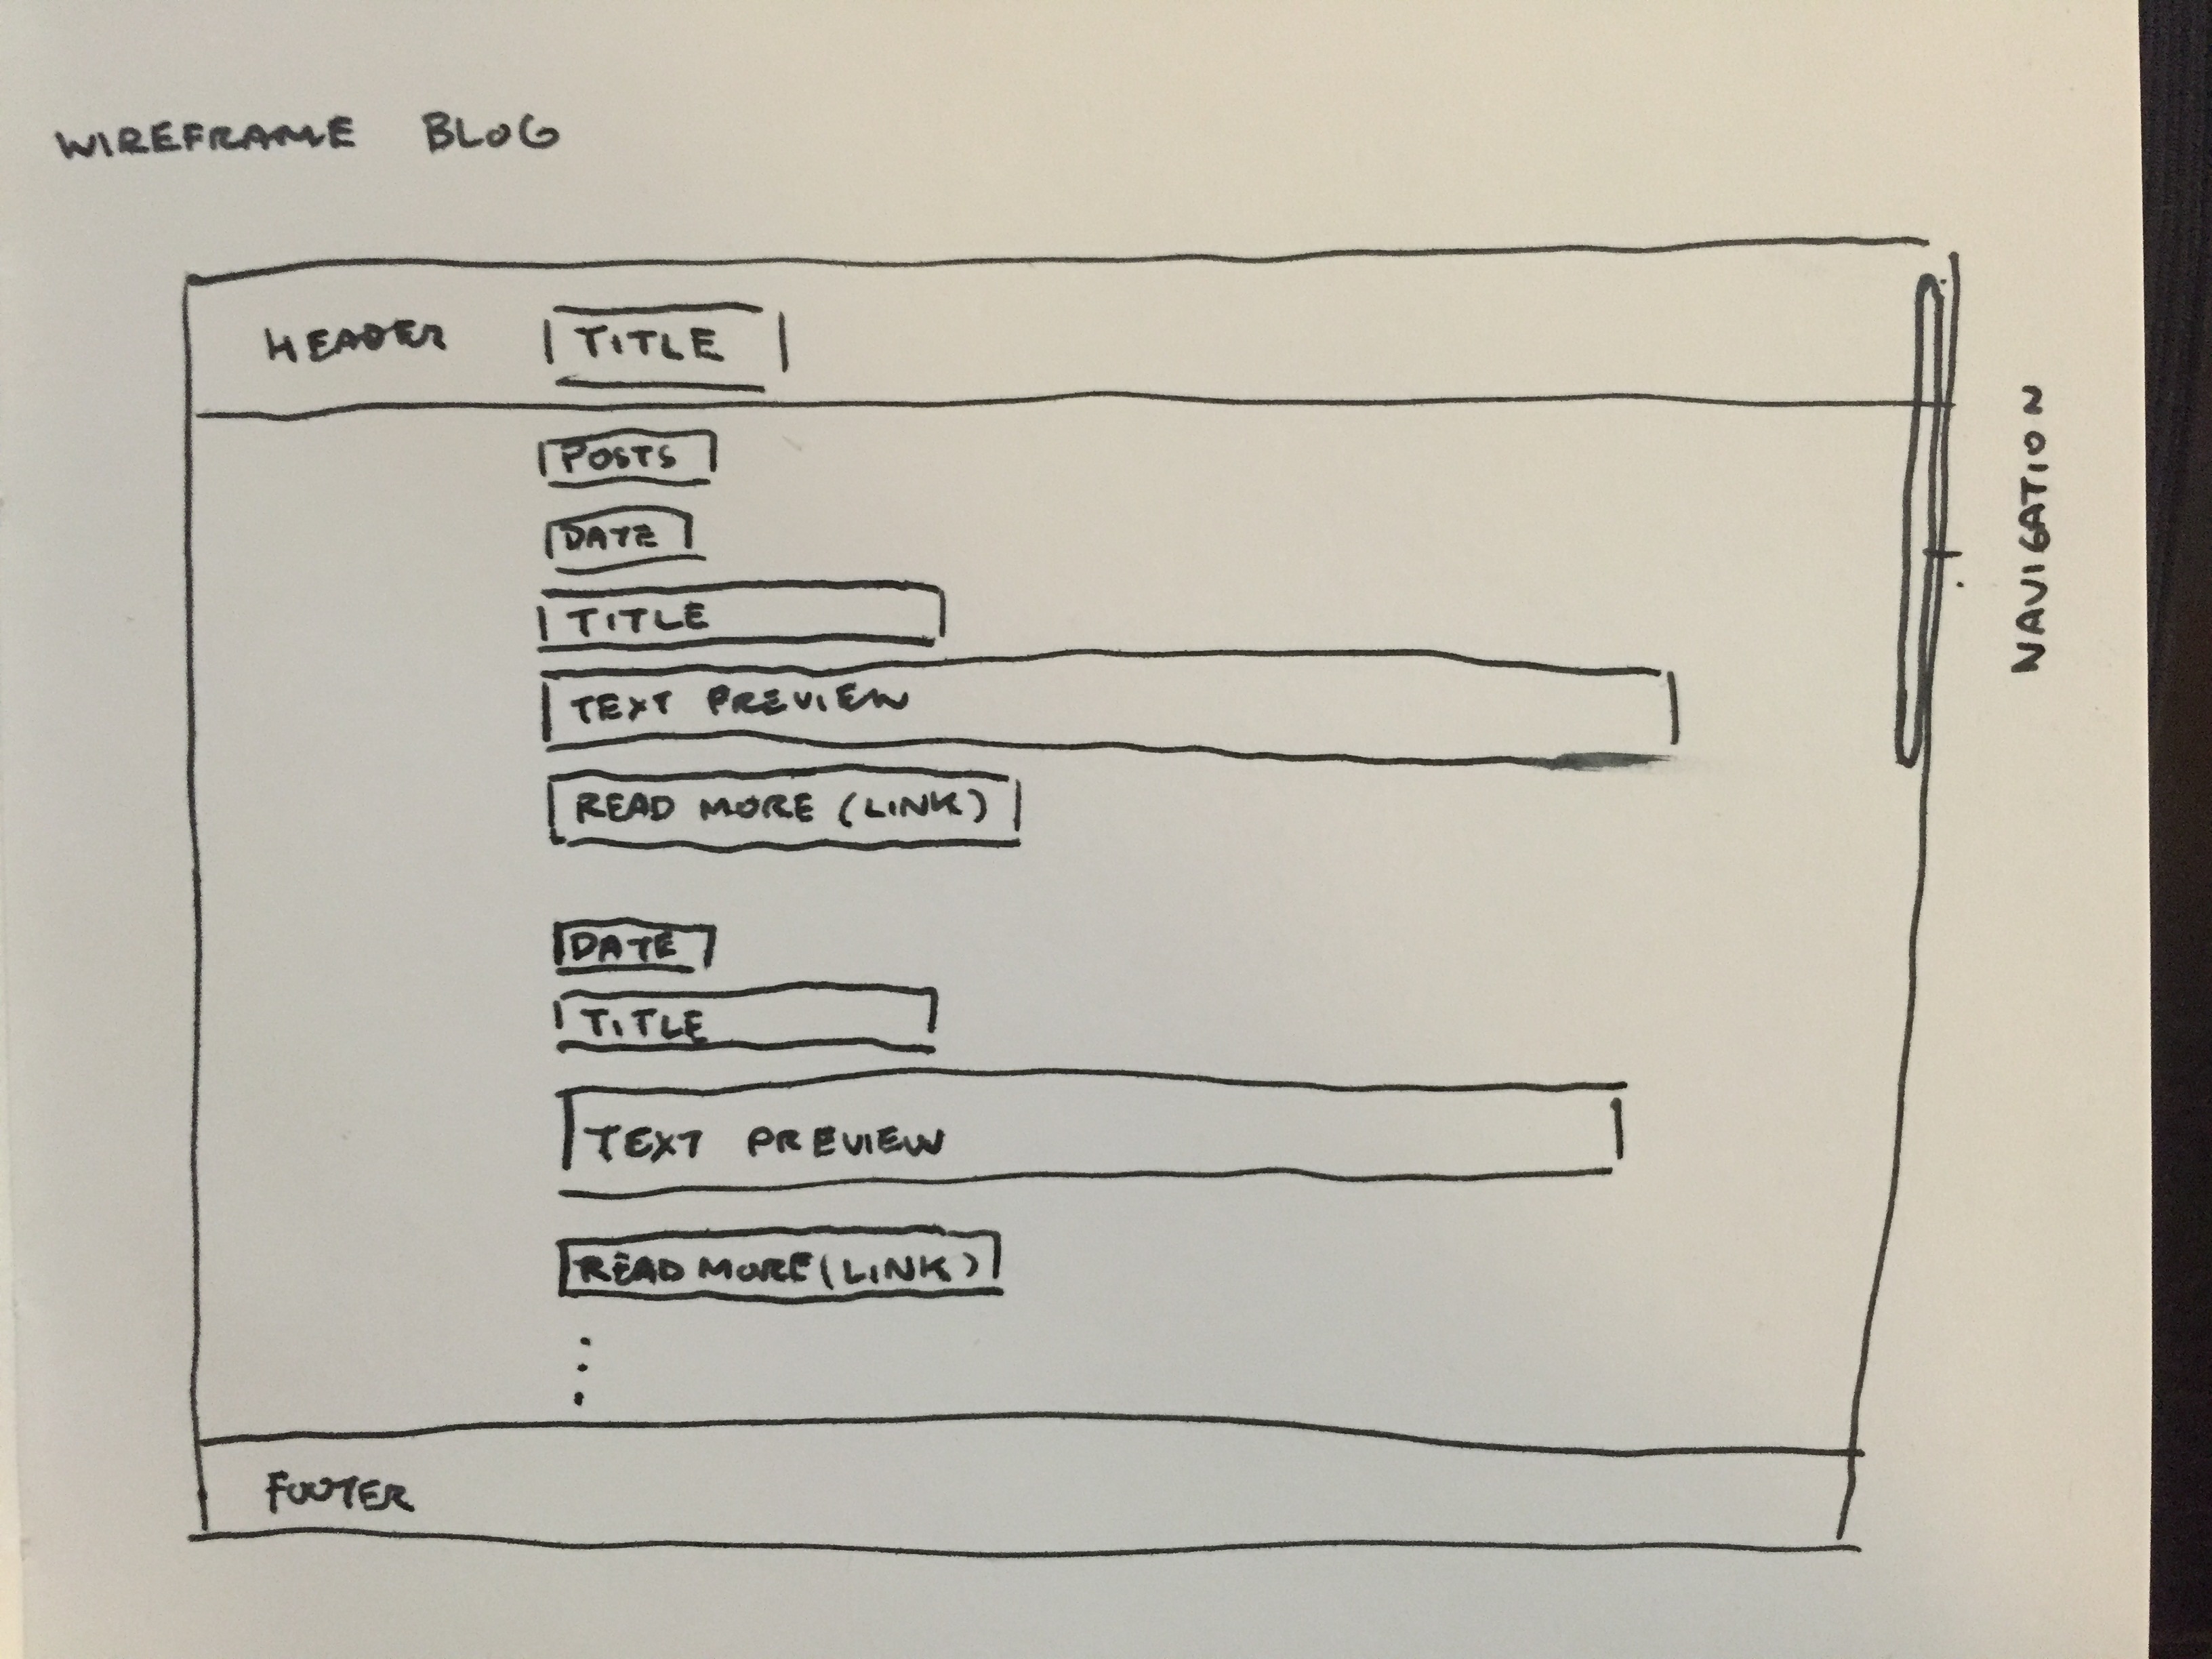 WIREFRAME BLOG
HEADER
TITLE
POSTS
DATE
TITLE
TEXT PREVIEW
READ MORE (LINK)
DATE
TITLE
TEXT PREVIEW
READ MORE (LINK)
...
FOOTER
NAVIGATION